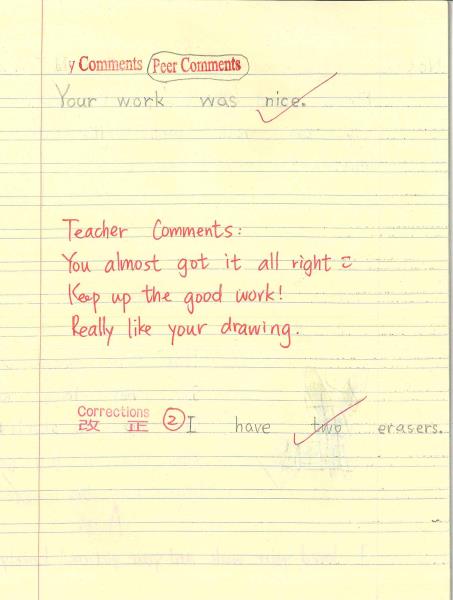 y Comments Peer Comments
Your work was nice.
Teacher Comments:
You almost got it all right :)
Keep up the good work!
Really like your drawing.
Corrections
改 正 ② I have two erasers.